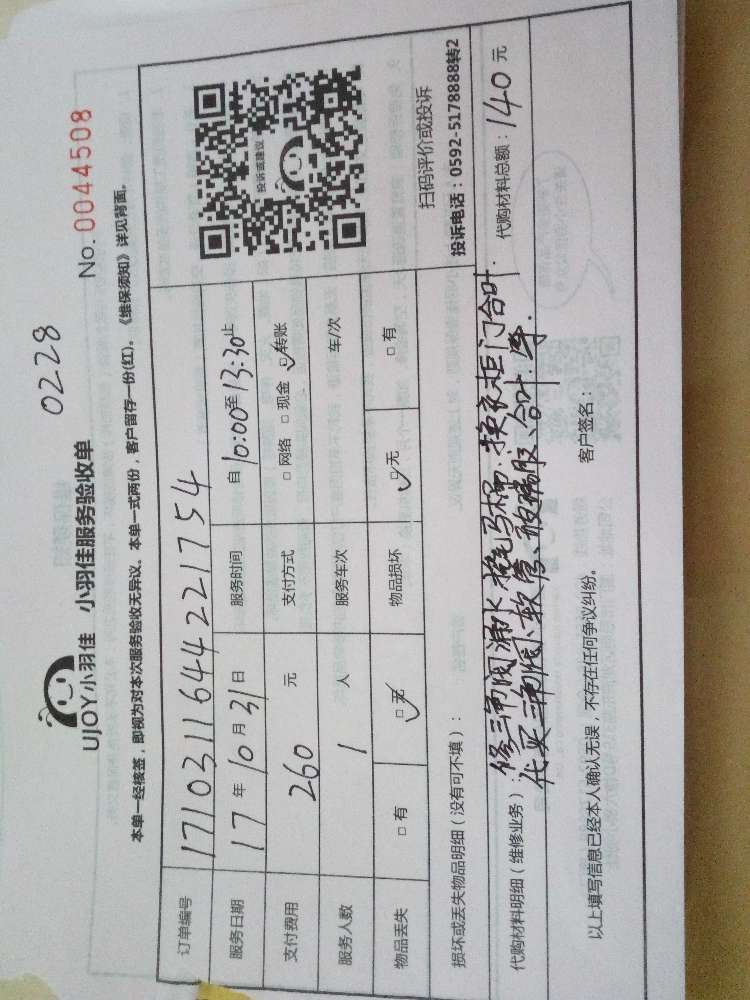 0228
UJOY小羽佳 小羽佳服务验收单 No. 0044508
本单一经核签，即视为对本次服务验收无异议。本单一式两份，客户留存一份(红)。《维保须知》详见背面。
订单编号 171031164422 1754
服务日期 17年10月31日 服务时间 自10:00至13:30止
支付费用 260 元 支付方式 □网络 □现金 ☑转账
服务人数 1 人 服务车次 车/次
物品丢失 □有 ☑无 物品损坏 ☑无 □有
投诉或建议
扫码评价或投诉
投诉电话：0592-5178888转2
损坏或丢失物品明细（没有可不填）：
代购材料明细（维修业务）：修三角阀漏水 马桶. 换衣柜门合叶. 代购材料总额：140元
代买三角阀 软管、玻璃胶、合叶.
以上填写信息已经本人确认无误，不存在任何争议纠纷。 客户签名：